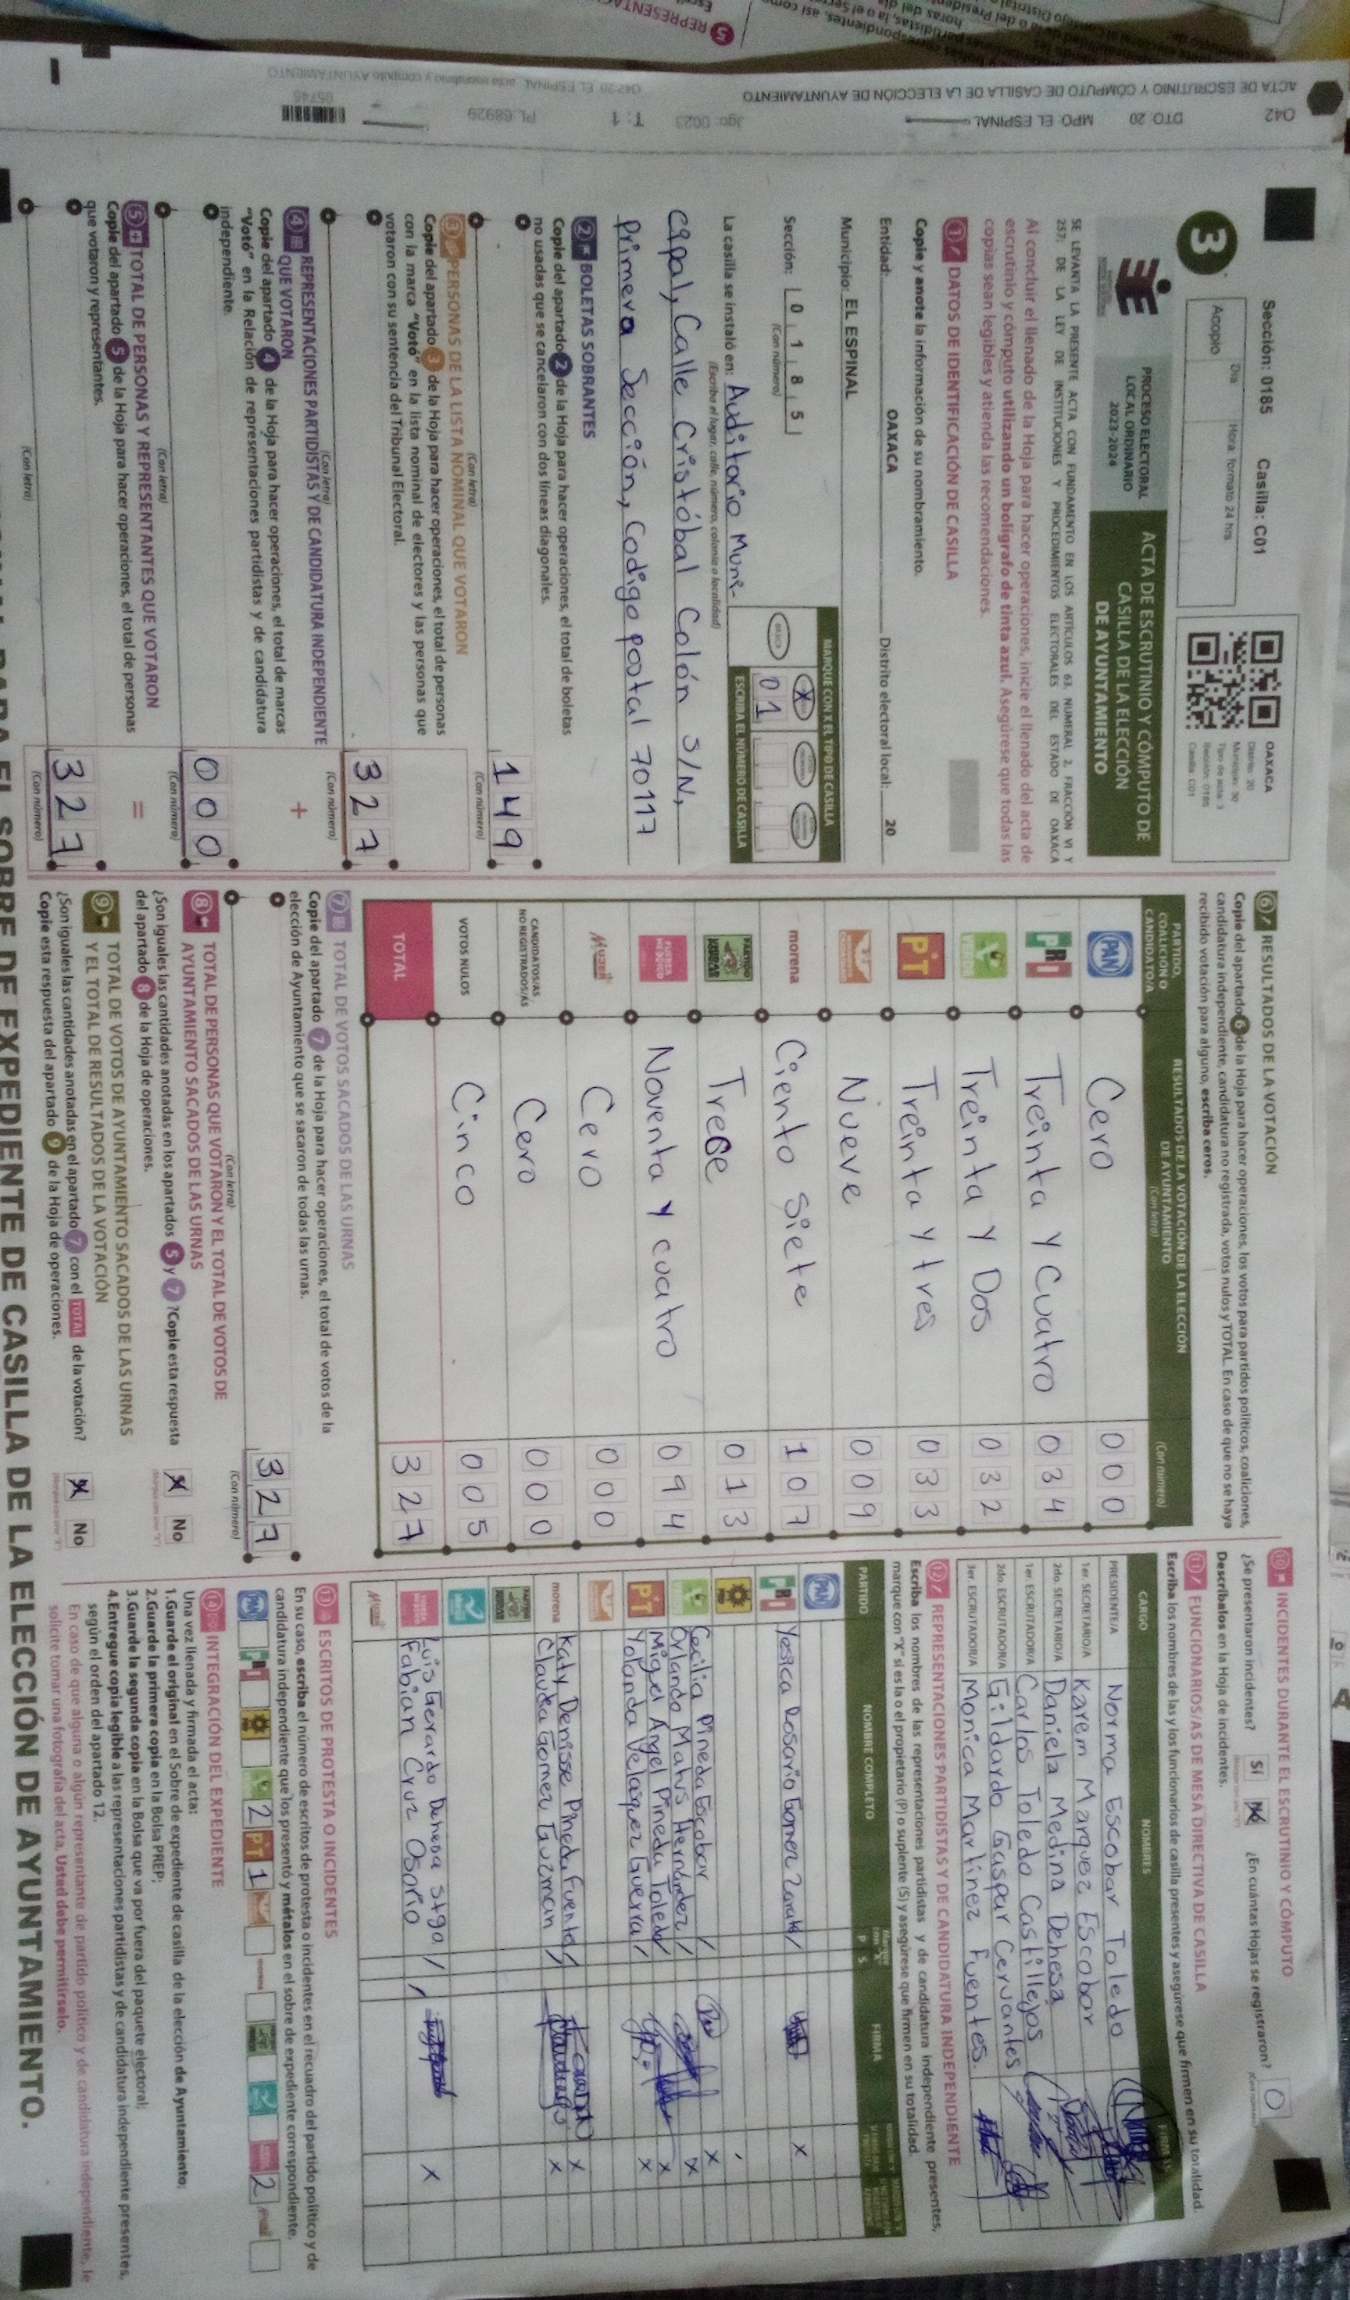 ACTA DE ESCRUTINIO Y CÓMPUTO DE CASILLA DE LA ELECCIÓN DE AYUNTAMIENTO
O42 DTO: 20 MPO: EL ESPINAL
3go: 0023 T: 1 PL: 68929
05745
3
Sección: 0185 Casilla: C01
Acopio
Día
Hora: formato 24 hrs
OAXACA
Distrito: 20
Municipio: 30
Tipo de acta: 3
Sección: 0185
Casilla: C01
PROCESO ELECTORAL
LOCAL ORDINARIO
2023-2024
ACTA DE ESCRUTINIO Y CÓMPUTO DE
CASILLA DE LA ELECCIÓN
DE AYUNTAMIENTO
SE LEVANTA LA PRESENTE ACTA CON FUNDAMENTO EN LOS ARTÍCULOS 63, NUMERAL 2, FRACCIÓN VI Y
257; DE LA LEY DE INSTITUCIONES Y PROCEDIMIENTOS ELECTORALES DEL ESTADO DE OAXACA
Al concluir el llenado de la Hoja para hacer operaciones, inicie el llenado del acta de
escrutinio y cómputo utilizando un bolígrafo de tinta azul. Asegúrese que todas las
copias sean legibles y atienda las recomendaciones.
1 DATOS DE IDENTIFICACIÓN DE CASILLA
Copie y anote la información de su nombramiento.
Entidad: OAXACA Distrito electoral local: 20
Municipio: EL ESPINAL
Sección: 0 1 8 5
(Con número)
MARQUE CON X EL TIPO DE CASILLA
BÁSICA X
0 1
ESCRIBA EL NÚMERO DE CASILLA
La casilla se instaló en: Auditorio Muni-
(Escriba el lugar, calle, número, colonia o localidad)
cipal, Calle Cristóbal Colón S/N,
Primera Sección, Codigo postal 70117
2 BOLETAS SOBRANTES
Copie del apartado 2 de la Hoja para hacer operaciones, el total de boletas
no usadas que se cancelaron con dos líneas diagonales.
149
(Con letra) (Con número)
3 PERSONAS DE LA LISTA NOMINAL QUE VOTARON
Copie del apartado 3 de la Hoja para hacer operaciones, el total de personas
con la marca "Votó" en la lista nominal de electores y las personas que
votaron con su sentencia del Tribunal Electoral.
327
(Con letra) (Con número)
4 REPRESENTACIONES PARTIDISTAS Y DE CANDIDATURA INDEPENDIENTE
QUE VOTARON
+
Copie del apartado 4 de la Hoja para hacer operaciones, el total de marcas
"Votó" en la Relación de representaciones partidistas y de candidatura
independiente.
000
(Con letra) (Con número)
5 TOTAL DE PERSONAS Y REPRESENTANTES QUE VOTARON
=
Copie del apartado 5 de la Hoja para hacer operaciones, el total de personas
que votaron y representantes.
327
(Con letra) (Con número)
6 RESULTADOS DE LA VOTACIÓN
Copie del apartado 6 de la Hoja para hacer operaciones, los votos para partidos políticos, coaliciones,
candidatura independiente, candidatura no registrada, votos nulos y TOTAL. En caso de que no se haya
recibido votación para alguno, escriba ceros.
PARTIDO, COALICIÓN O CANDIDATO/A
RESULTADOS DE LA VOTACIÓN DE LA ELECCIÓN DE AYUNTAMIENTO
(Con letra) (Con número)
PAN Cero 000
PRI Treinta y Cuatro 034
Treinta y Dos 032
PT Treinta y tres 033
Nueve 009
morena Ciento siete 107
Trece 013
FUERZA MÉXICO Noventa y cuatro 094
Mujer Cero 000
CANDIDATOS/AS NO REGISTRADOS/AS Cero 000
VOTOS NULOS Cinco 005
TOTAL 327
7 TOTAL DE VOTOS SACADOS DE LAS URNAS
Copie del apartado 7 de la Hoja para hacer operaciones, el total de votos de la
elección de Ayuntamiento que se sacaron de todas las urnas.
327
(Con letra) (Con número)
8 TOTAL DE PERSONAS QUE VOTARON Y EL TOTAL DE VOTOS DE
AYUNTAMIENTO SACADOS DE LAS URNAS
¿Son iguales las cantidades anotadas en los apartados 5 y 7 ? Copie esta respuesta
del apartado 8 de la Hoja de operaciones.
X No
9 TOTAL DE VOTOS DE AYUNTAMIENTO SACADOS DE LAS URNAS
Y EL TOTAL DE RESULTADOS DE LA VOTACIÓN
¿Son iguales las cantidades anotadas en el apartado 7 con el TOTAL de la votación?
Copie esta respuesta del apartado 9 de la Hoja de operaciones.
X No
10 INCIDENTES DURANTE EL ESCRUTINIO Y CÓMPUTO
¿Se presentaron incidentes? Sí X ¿En cuántas Hojas se registraron? 0
Descríbalos en la Hoja de incidentes.
11 FUNCIONARIOS/AS DE MESA DIRECTIVA DE CASILLA
Escriba los nombres de las y los funcionarios de casilla presentes y asegúrese que firmen en su totalidad.
CARGO NOMBRES FIRMAS
PRESIDENTE/A Norma Escobar Toledo
1er SECRETARIO/A Karem Marquez Escobar
2do SECRETARIO/A Daniela Medina Dehesa
1er ESCRUTADOR/A Carlos Toledo Castillejos
2do ESCRUTADOR/A Gildardo Gaspar Cervantes
3er ESCRUTADOR/A Monica Martinez Fuentes.
12 REPRESENTACIONES PARTIDISTAS Y DE CANDIDATURA INDEPENDIENTE
Escriba los nombres de las representaciones partidistas y de candidatura independiente presentes,
marque con "X" si es la o el propietario (P) o suplente (S) y asegúrese que firmen en su totalidad.
PARTIDO NOMBRE COMPLETO P S FIRMA
PAN
PRI Yesica Rosario Gomez Zarate / X
Cecilia Pineda Escobar / X
Orlando Matus Hernandez / X
PT Miguel Angel Pineda Toledo / X
Yolanda Velasquez Guerra / X
morena Katy Denisse Pineda Fuentes / X
Claudia Gomez Guzman / X
Luis Gerardo Dehesa Stgo / X
Fabian Cruz Osorio /
Mujer
13 ESCRITOS DE PROTESTA O INCIDENTES
En su caso, escriba el número de escritos de protesta o incidentes en el recuadro del partido político y de
candidatura independiente que los presentó y métalos en el sobre de expediente correspondiente.
PAN PRI 2 PT 1 morena 2
14 INTEGRACIÓN DEL EXPEDIENTE
Una vez llenada y firmada el acta:
1. Guarde el original en el Sobre de expediente de casilla de la elección de Ayuntamiento;
2. Guarde la primera copia en la Bolsa PREP;
3. Guarde la segunda copia en la Bolsa que va por fuera del paquete electoral;
4. Entregue copia legible a las representaciones partidistas y de candidatura independiente presentes,
según el orden del apartado 12.
En caso de que alguna o algún representante de partido político y de candidatura independiente, le
solicite tomar una fotografía del acta, Usted debe permitírselo.
EL SOBRE DE EXPEDIENTE DE CASILLA DE LA ELECCIÓN DE AYUNTAMIENTO.